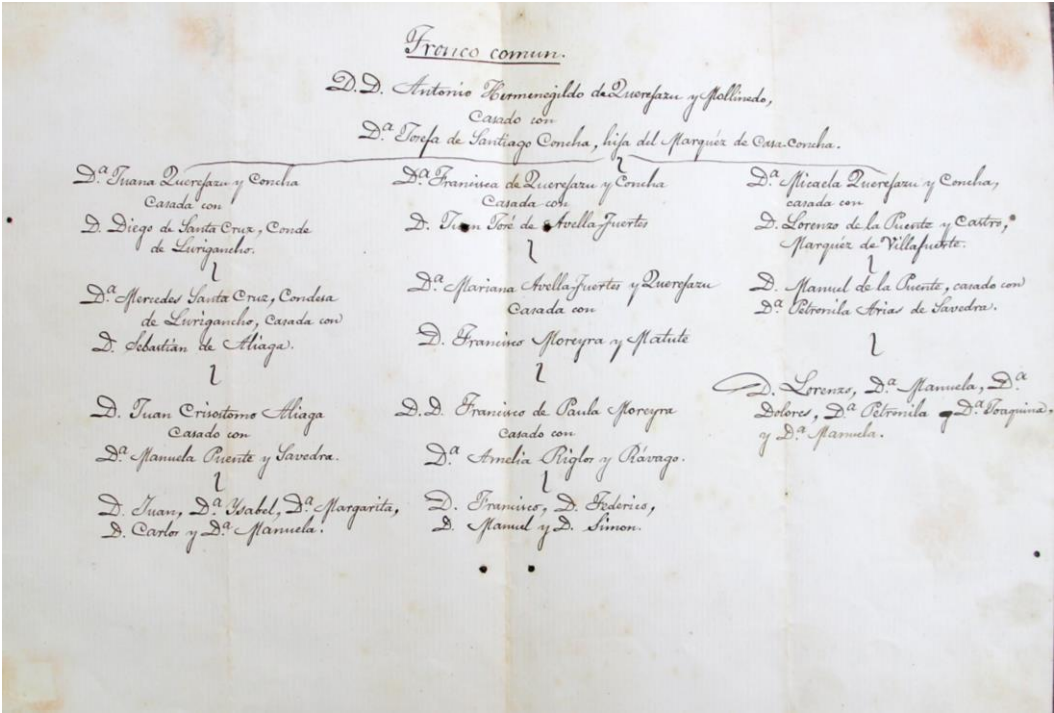 Tronco comun.
D.D. Antonio Hermenegildo de Querejazu y Mollinedo,
Casado con
D.ª Josefa de Santiago Concha, hija del Marquéz de Casa-Concha.
D.ª Juana Querejazu y Concha
Casada con
D. Diego de Santa Cruz, Conde
de Lurigancho.
D.ª Mercedes Santa Cruz, Condesa
de Lurigancho, Casada con
D. Sebastián de Aliaga.
D. Juan Crisostomo Aliaga
Casado con
D.ª Manuela Puente y Savedra.
D. Juan, D.ª Ysabel, D.ª Margarita,
D. Carlos y D.ª Manuela.
D.ª Francisca de Querejazu y Concha
Casada con
D. Juan José de Avella-Fuertes
D.ª Mariana Avella-Fuertes y Querejazu
Casada con
D. Francisco Moreyra y Matute
D.D. Francisco de Paula Moreyra
Casado con
D.ª Amelia Riglos y Rávago.
D. Francisco, D. Federico,
D. Manuel y D. Simon.
D.ª Micaela Querejazu y Concha,
casada con
D. Lorenzo de la Puente y Castro,
Marquéz de Villafuerte.
D. Manuel de la Puente, casado con
D.ª Petronila Arias de Savedra.
D. Lorenzo, D.ª Manuela, D.ª
Dolores, D.ª Petronila D.ª Joaquina,
y D.ª Manuela.